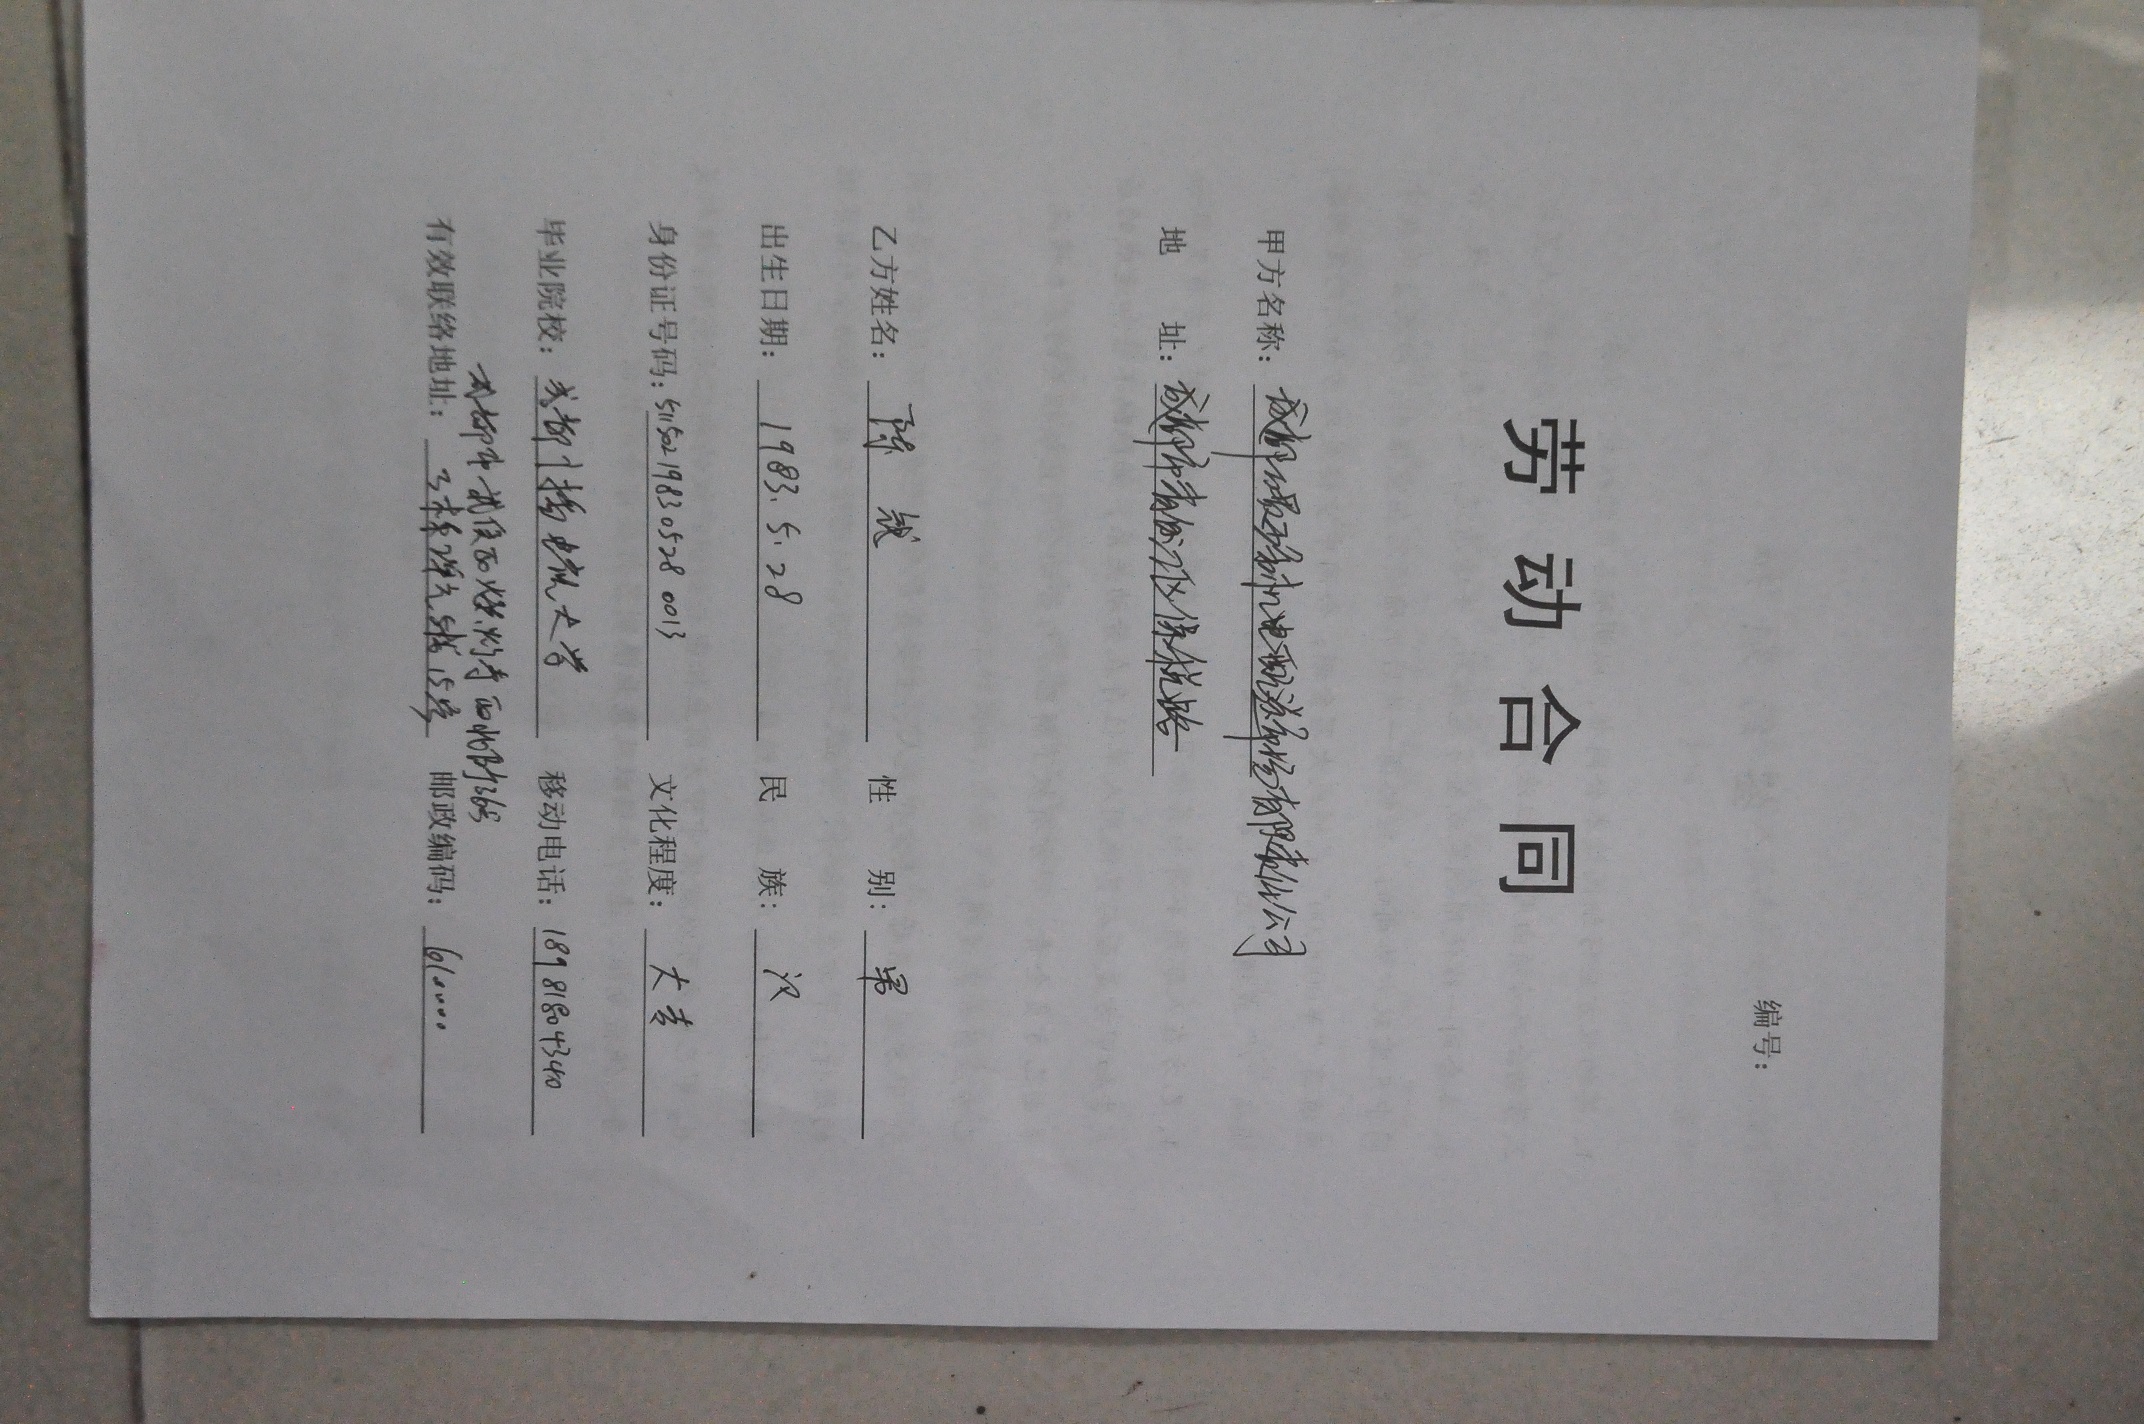 编号：
劳动合同
甲方名称：成都 有限责任公司
地 址：成都市 保税路
乙方姓名：陈 诚 性 别：男
出生日期：1983.5.28 民 族：汉
身份证号码：511502198305280013 文化程度：大专
毕业院校：成都广播电视大学 移动电话：18981804340
成都市
有效联络地址：3栋 单元5楼15号 邮政编码：610000